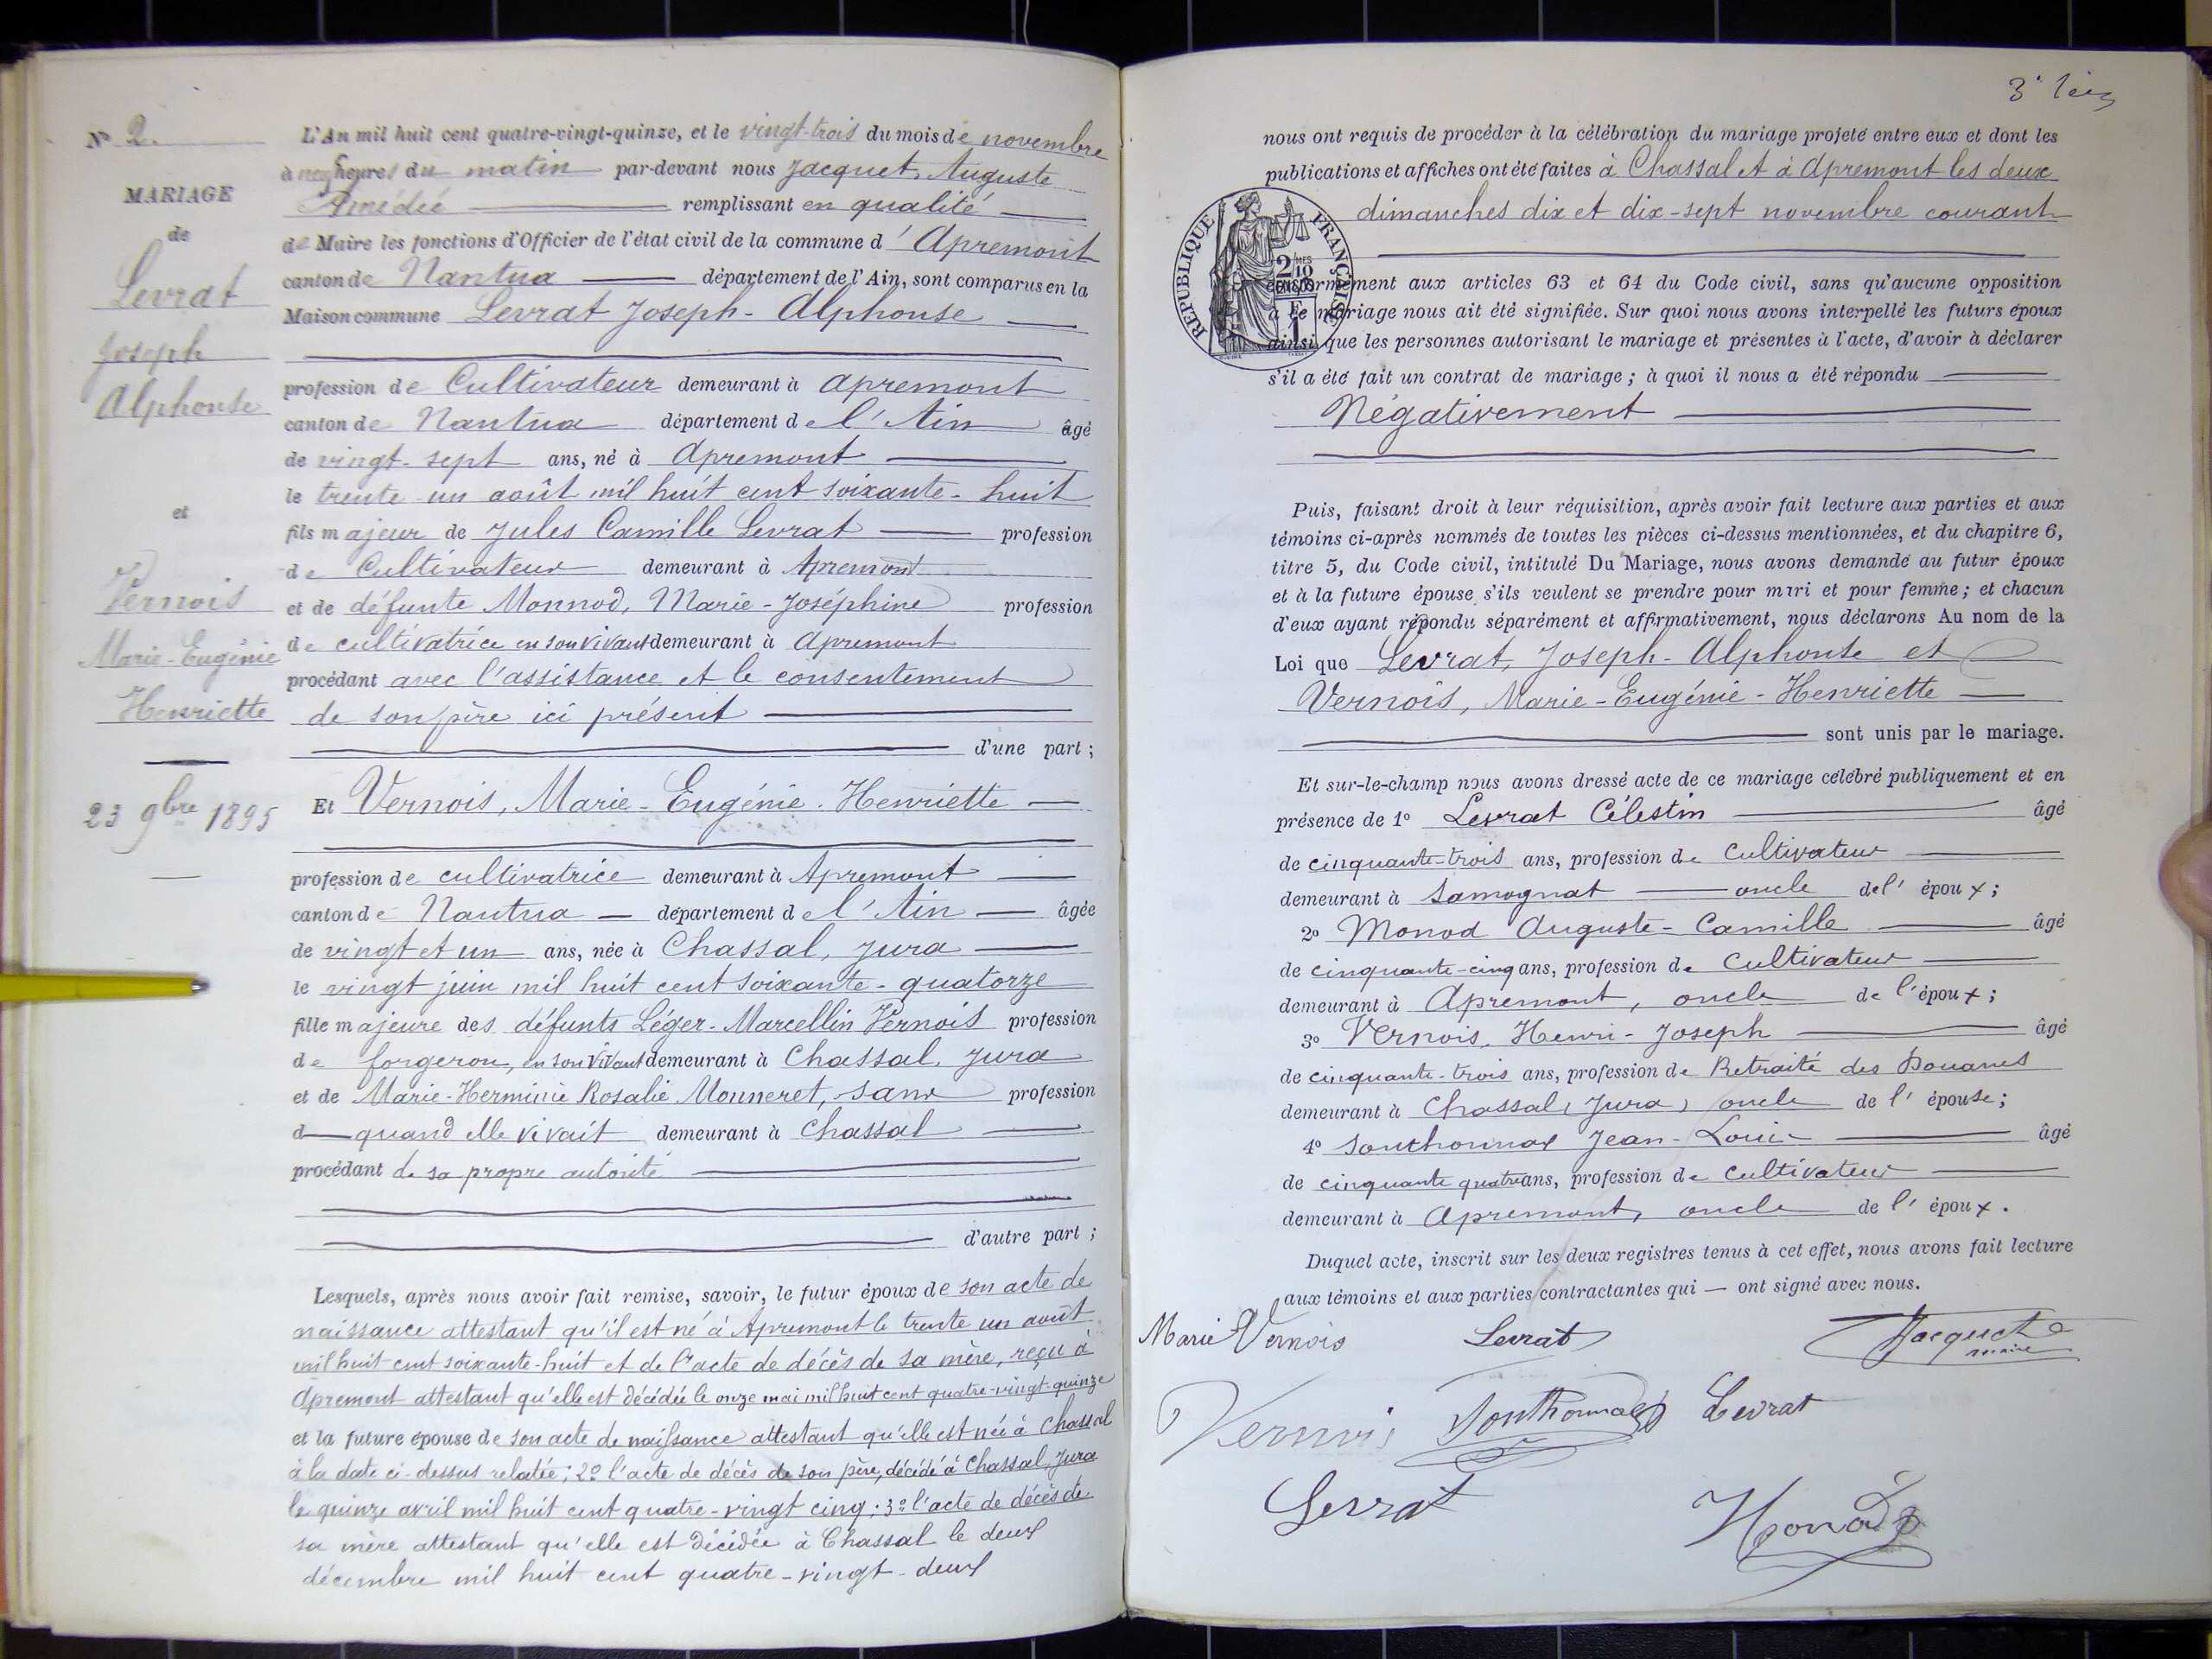 N° 2.
MARIAGE
de
Levrat
Joseph
Alphonse
et
Vernois
Marie-Eugénie
Henriette
23 9bre 1895
L'An mil huit cent quatre-vingt-quinze, et le vingt-trois du mois de novembre
à neuf heures du matin par-devant nous Jacquet, Auguste
Amédée remplissant en qualité
de Maire les fonctions d'Officier de l'état civil de la commune d'Apremont
canton de Nantua département de l'Ain, sont comparus en la
Maison commune Levrat Joseph-Alphonse
profession de Cultivateur demeurant à Apremont
canton de Nantua département de l'Ain âgé
de vingt-sept ans, né à Apremont
le trente un août mil huit cent soixante-huit
fils majeur de Jules Camille Levrat profession
de Cultivateur demeurant à Apremont
et de défunte Monnod, Marie-Joséphine profession
de cultivatrice en son vivant demeurant à Apremont
procédant avec l'assistance et le consentement
de son père ici présent
d'une part ;
Et Vernois, Marie-Eugénie-Henriette
profession de cultivatrice demeurant à Apremont
canton de Nantua département de l'Ain âgée
de vingt et un ans, née à Chassal, Jura
le vingt juin mil huit cent soixante-quatorze
fille majeure des défunts Léger-Marcellin Vernois profession
de forgeron, en son vivant demeurant à Chassal, Jura
et de Marie-Herminie Rosalie Monneret, sans profession
d quand elle vivait demeurant à Chassal
procédant de sa propre autorité
d'autre part ;
Lesquels, après nous avoir fait remise, savoir, le futur époux de son acte de
naissance attestant qu'il est né à Apremont le trente un août
mil huit cent soixante-huit et de l'acte de décès de sa mère, reçu à
Apremont attestant qu'elle est décédée le onze mai mil huit cent quatre-vingt-quinze
et la future épouse de son acte de naissance attestant qu'elle est née à Chassal
à la date ci-dessus relatée ; 2° l'acte de décès de son père, décédé à Chassal, Jura
le quinze avril mil huit cent quatre-vingt cinq ; 3° l'acte de décès de
sa mère attestant qu'elle est décédée à Chassal le deux
décembre mil huit cent quatre-vingt-deux
nous ont requis de procéder à la célébration du mariage projeté entre eux et dont les
publications et affiches ont été faites à Chassal et à Apremont les deux
dimanches dix et dix-sept novembre courant
RÉPUBLIQUE FRANÇAISE
2/10
conformément aux articles 63 et 64 du Code civil, sans qu'aucune opposition
à ce mariage nous ait été signifiée. Sur quoi nous avons interpellé les futurs époux
ainsi que les personnes autorisant le mariage et présentes à l'acte, d'avoir à déclarer
s'il a été fait un contrat de mariage ; à quoi il nous a été répondu
Négativement
Puis, faisant droit à leur réquisition, après avoir fait lecture aux parties et aux
témoins ci-après nommés de toutes les pièces ci-dessus mentionnées, et du chapitre 6,
titre 5, du Code civil, intitulé Du Mariage, nous avons demandé au futur époux
et à la future épouse s'ils veulent se prendre pour mari et pour femme ; et chacun
d'eux ayant répondu séparément et affirmativement, nous déclarons Au nom de la
Loi que Levrat, Joseph-Alphonse et
Vernois, Marie-Eugénie-Henriette
sont unis par le mariage.
Et sur-le-champ nous avons dressé acte de ce mariage célébré publiquement et en
présence de 1° Levrat Célestin âgé
de cinquante-trois ans, profession de cultivateur
demeurant à Samognat oncle de l'époux ;
2° Monod Auguste-Camille âgé
de cinquante-cinq ans, profession de Cultivateur
demeurant à Apremont, oncle de l'époux ;
3° Vernois, Henri-Joseph âgé
de cinquante-trois ans, profession de Retraité des Douanes
demeurant à Chassal (Jura) oncle de l'épouse ;
4° Sonthonnax Jean-Louis âgé
de cinquante quatre ans, profession de cultivateur
demeurant à Apremont, oncle de l'époux.
Duquel acte, inscrit sur les deux registres tenus à cet effet, nous avons fait lecture
aux témoins et aux parties contractantes qui — ont signé avec nous.
Marie Vernois Levrat Jacquet
maire
Vernois Sonthonnax Levrat
Levrat Monod